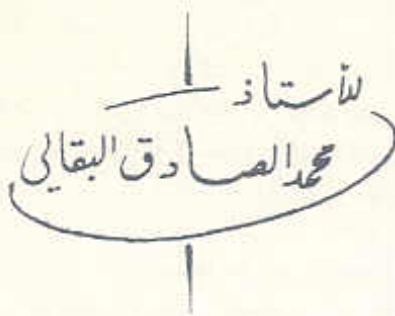 للأستاذ
محمد الصادق البقالي